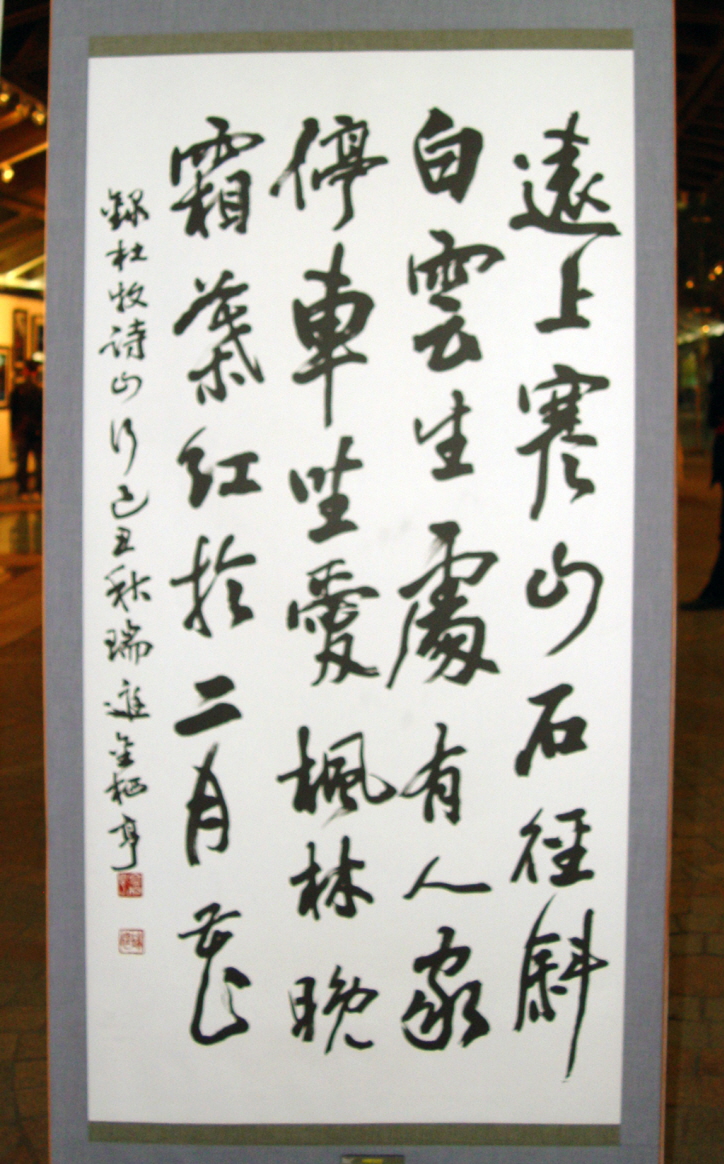 遠上寒山石徑斜
白雲生處有人家
停車坐愛楓林晚
霜葉紅於二月花
錄杜牧詩山行己丑秋瑞遊金栖亭